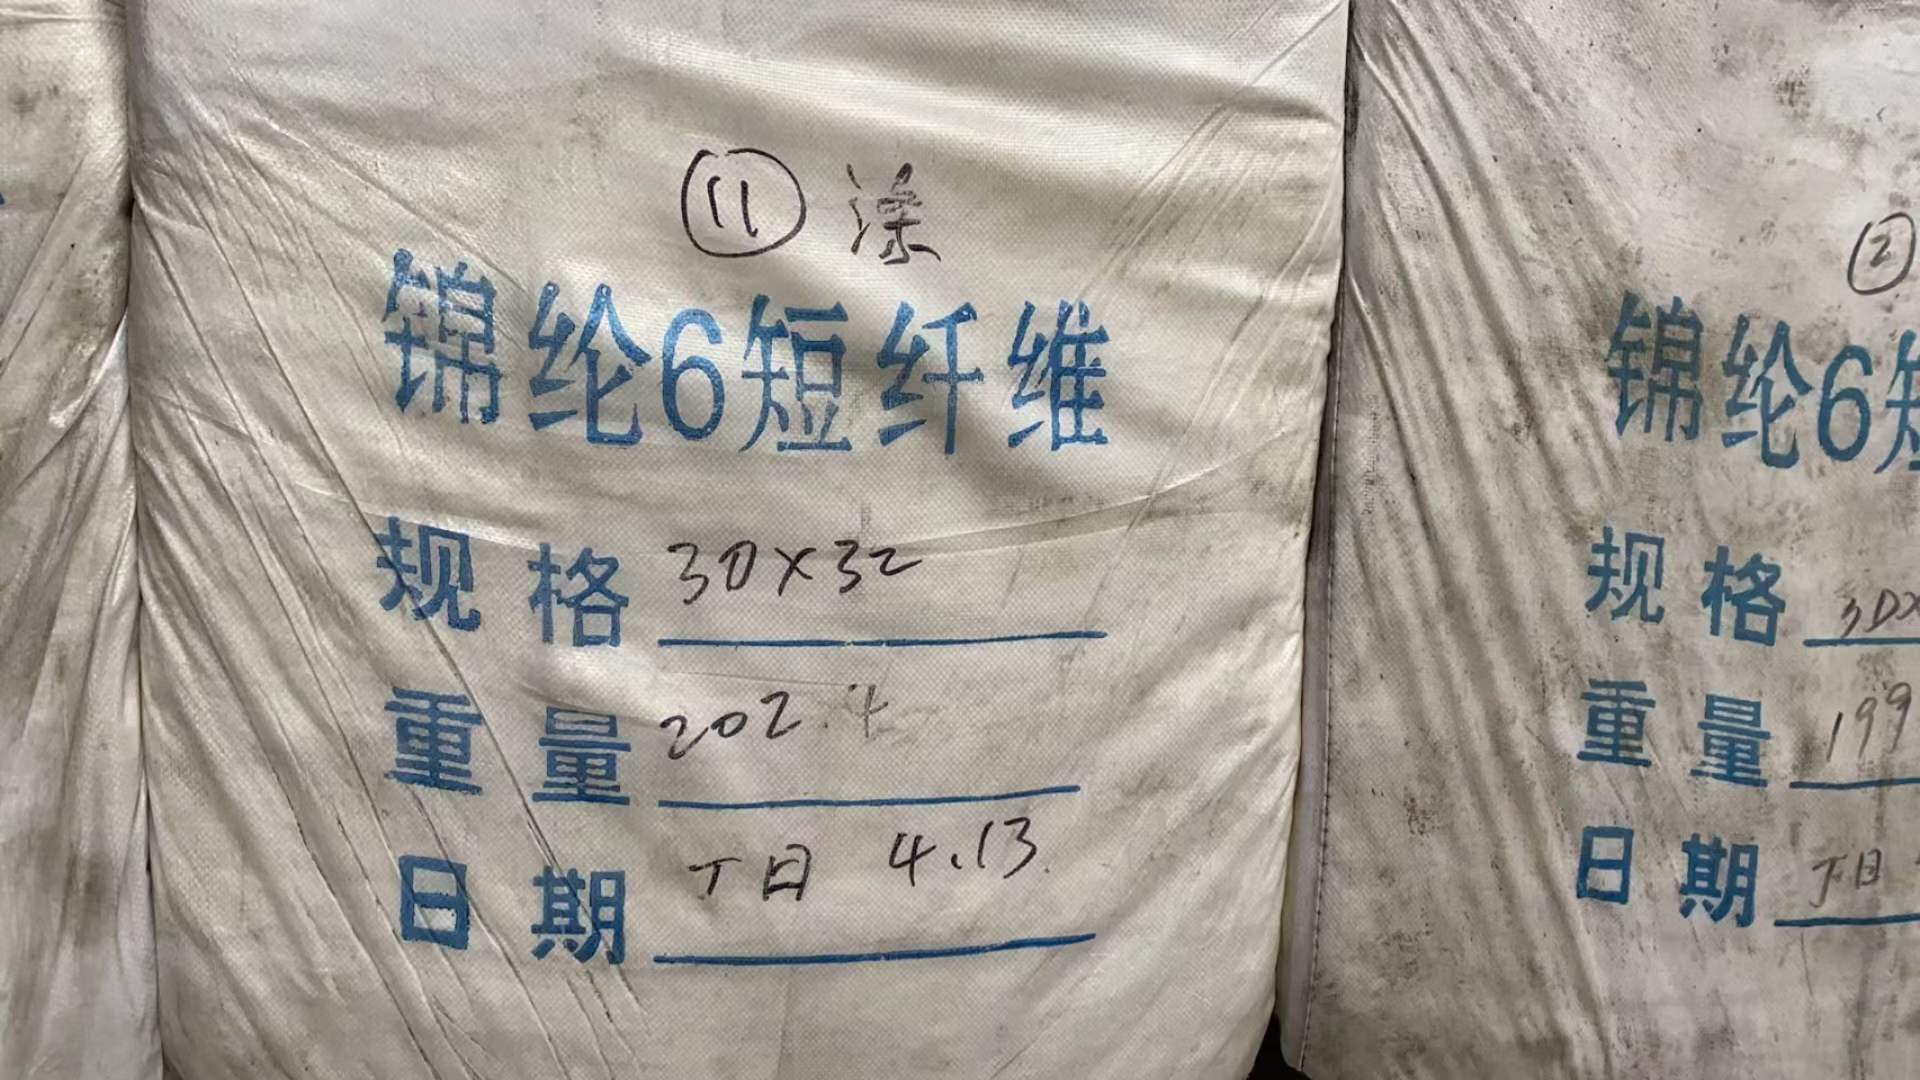 ⑪ 涤
锦纶6短纤维
规格 3D×32
重量 202.4
日期 丁日 4.13
②
锦纶6短
规格 3DX
重量 199
日期 丁日